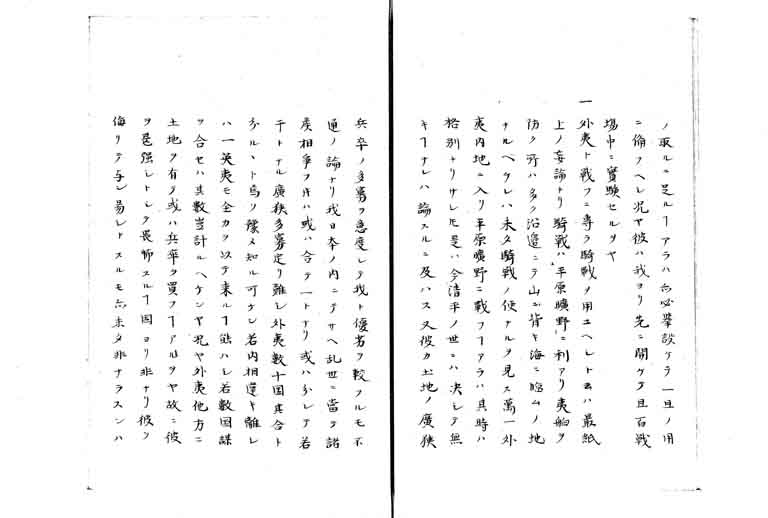 ノ取ルニ足ルヿアラハ亦必挙談ケラ一旦ノ用
ニ備フヘシ況ヤ彼ハ我ヨリ先ニ開ケテ且百戦
場中ニ實験セルヲヤ
一外夷ト戦フニ專ラ騎戦ヲ用ユヘシト云ハ最紙
上ノ妄論ナリ騎戦ハ平原曠野ニ利アリ夷船ヲ
防ク所ハ多ク沿邊ニテ山ニ背キ海ニ臨ムノ地
ナルヘケレハ未タ騎戦ノ便ナルヲ見ス萬一外
夷内地ニ入リ平原曠野ニ戦フヿアラハ其時ハ
格別ナリサレ𪜈是ハ今清平ノ世ニハ決シテ無
キヿナレハ論スルニ及ハス又彼カ土地ノ廣狭
兵卒ノ多寡ヲ意度シテ我ト優劣ヲ較フルモ不
通ノ論ナリ我日本ノ内ニテサヘ乱世ニ當テ諸
侯相爭フ片ハ或ハ合テ一トナリ或ハ分レテ若
干トナル廣狭多寡定リ難シ外夷數十国其合ト
分ルヽト烏ソ豫メ知ル可ケン若内相違キ離レ
ハ一英夷モ全力ヲ以テ来ルヿ能ハシ若數国謀
ヲ合セハ其數豈計ルヘケンヤ況ヤ外夷他方ニ
土地ヲ有チ或ハ兵卒ヲ買フヿアルヲヤ故ニ彼
ヲ是強シトシテ畏怖スルヿ固ヨリ非ナリ彼ヲ
侮リテ与シ易シトスルモ亦未タ非ナラスンハ